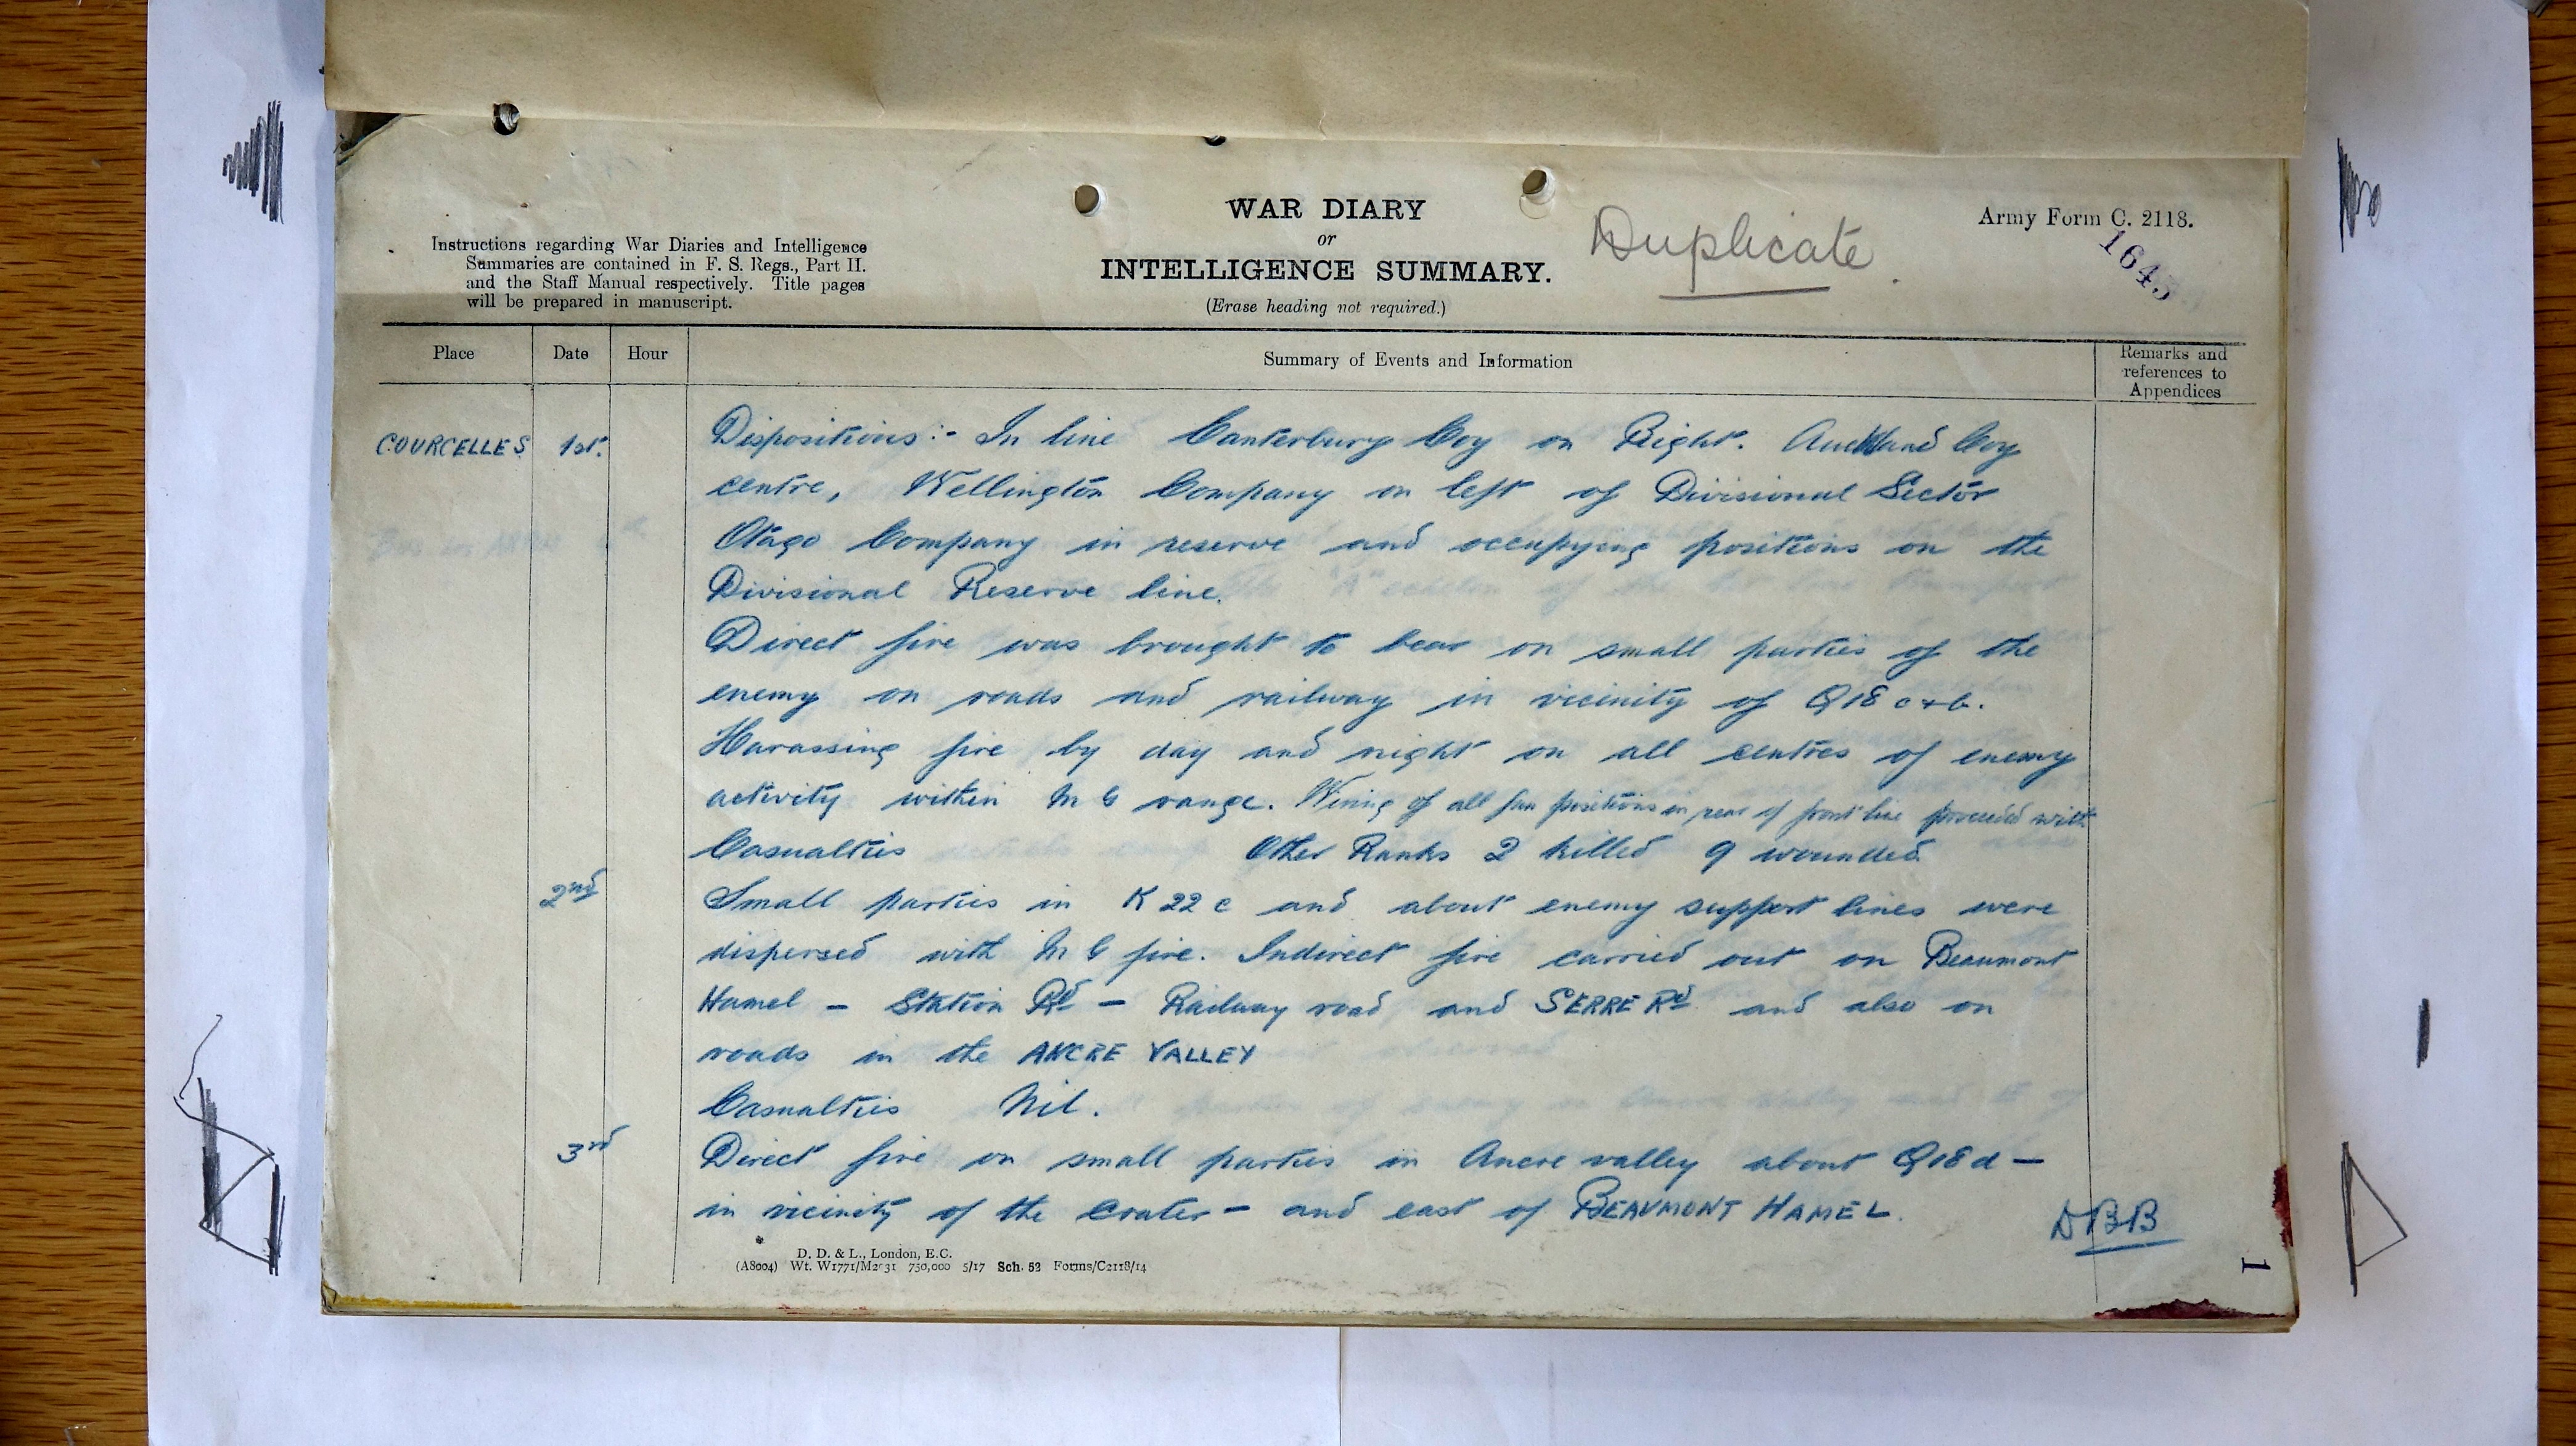 WAR DIARY
or
INTELLIGENCE SUMMARY.
(Erase heading not required.)
Duplicate
Army Form C. 2118.
1645
Instructions regarding War Diaries and Intelligence
Summaries are contained in F. S. Regs., Part II.
and the Staff Manual respectively. Title pages
will be prepared in manuscript.
Place Date Hour Summary of Events and Information Remarks and
references to
Appendices
COURCELLES 1st. Dispositions:- In line Canterbury Coy on Right. Auckland Coy
centre, Wellington Company on left of Divisional Sector
Otago Company in reserve and occupying positions on the
Divisional Reserve line.
Direct fire was brought to bear on small parties of the
enemy on roads and railway in vicinity of Q18 c+b.
Harassing fire by day and night on all centres of enemy
activity within M G range. Wiring of all gun positions in rear of front line proceeded with
Casualties Other Ranks 2 killed 9 wounded
2nd Small parties in K 22 c and about enemy support lines were
dispersed with M G fire. Indirect fire carried out on Beaumont
Hamel - Station Rd - Railway road and SERRE Rd and also on
roads in the ANCRE VALLEY
Casualties Nil.
3rd Direct fire on small parties in Ancre valley about Q18d -
in vicinity of the crater - and east of BEAUMONT HAMEL.
DBB
D. D. & L., London, E.C.
(A8004) Wt. W1771/M2031 750,000 5/17 Sch. 52 Forms/C2118/14
1